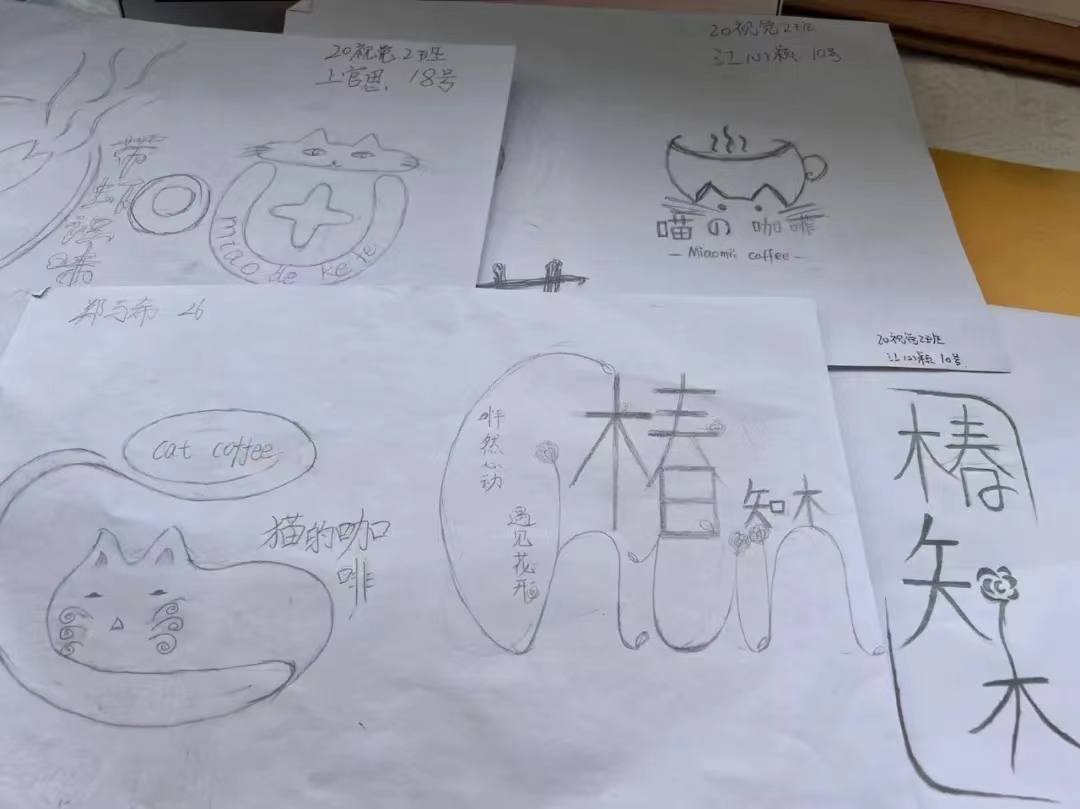 20视觉2班
上官思 18号
带
miao de kefe
20视觉2班
江心颖 10号
喵の咖啡
Miaomi coffee
26
cat coffee
猫的咖
啡
怦然心动
遇见花形
椿知木
20视觉2班
江心颖 10号
椿
知
木